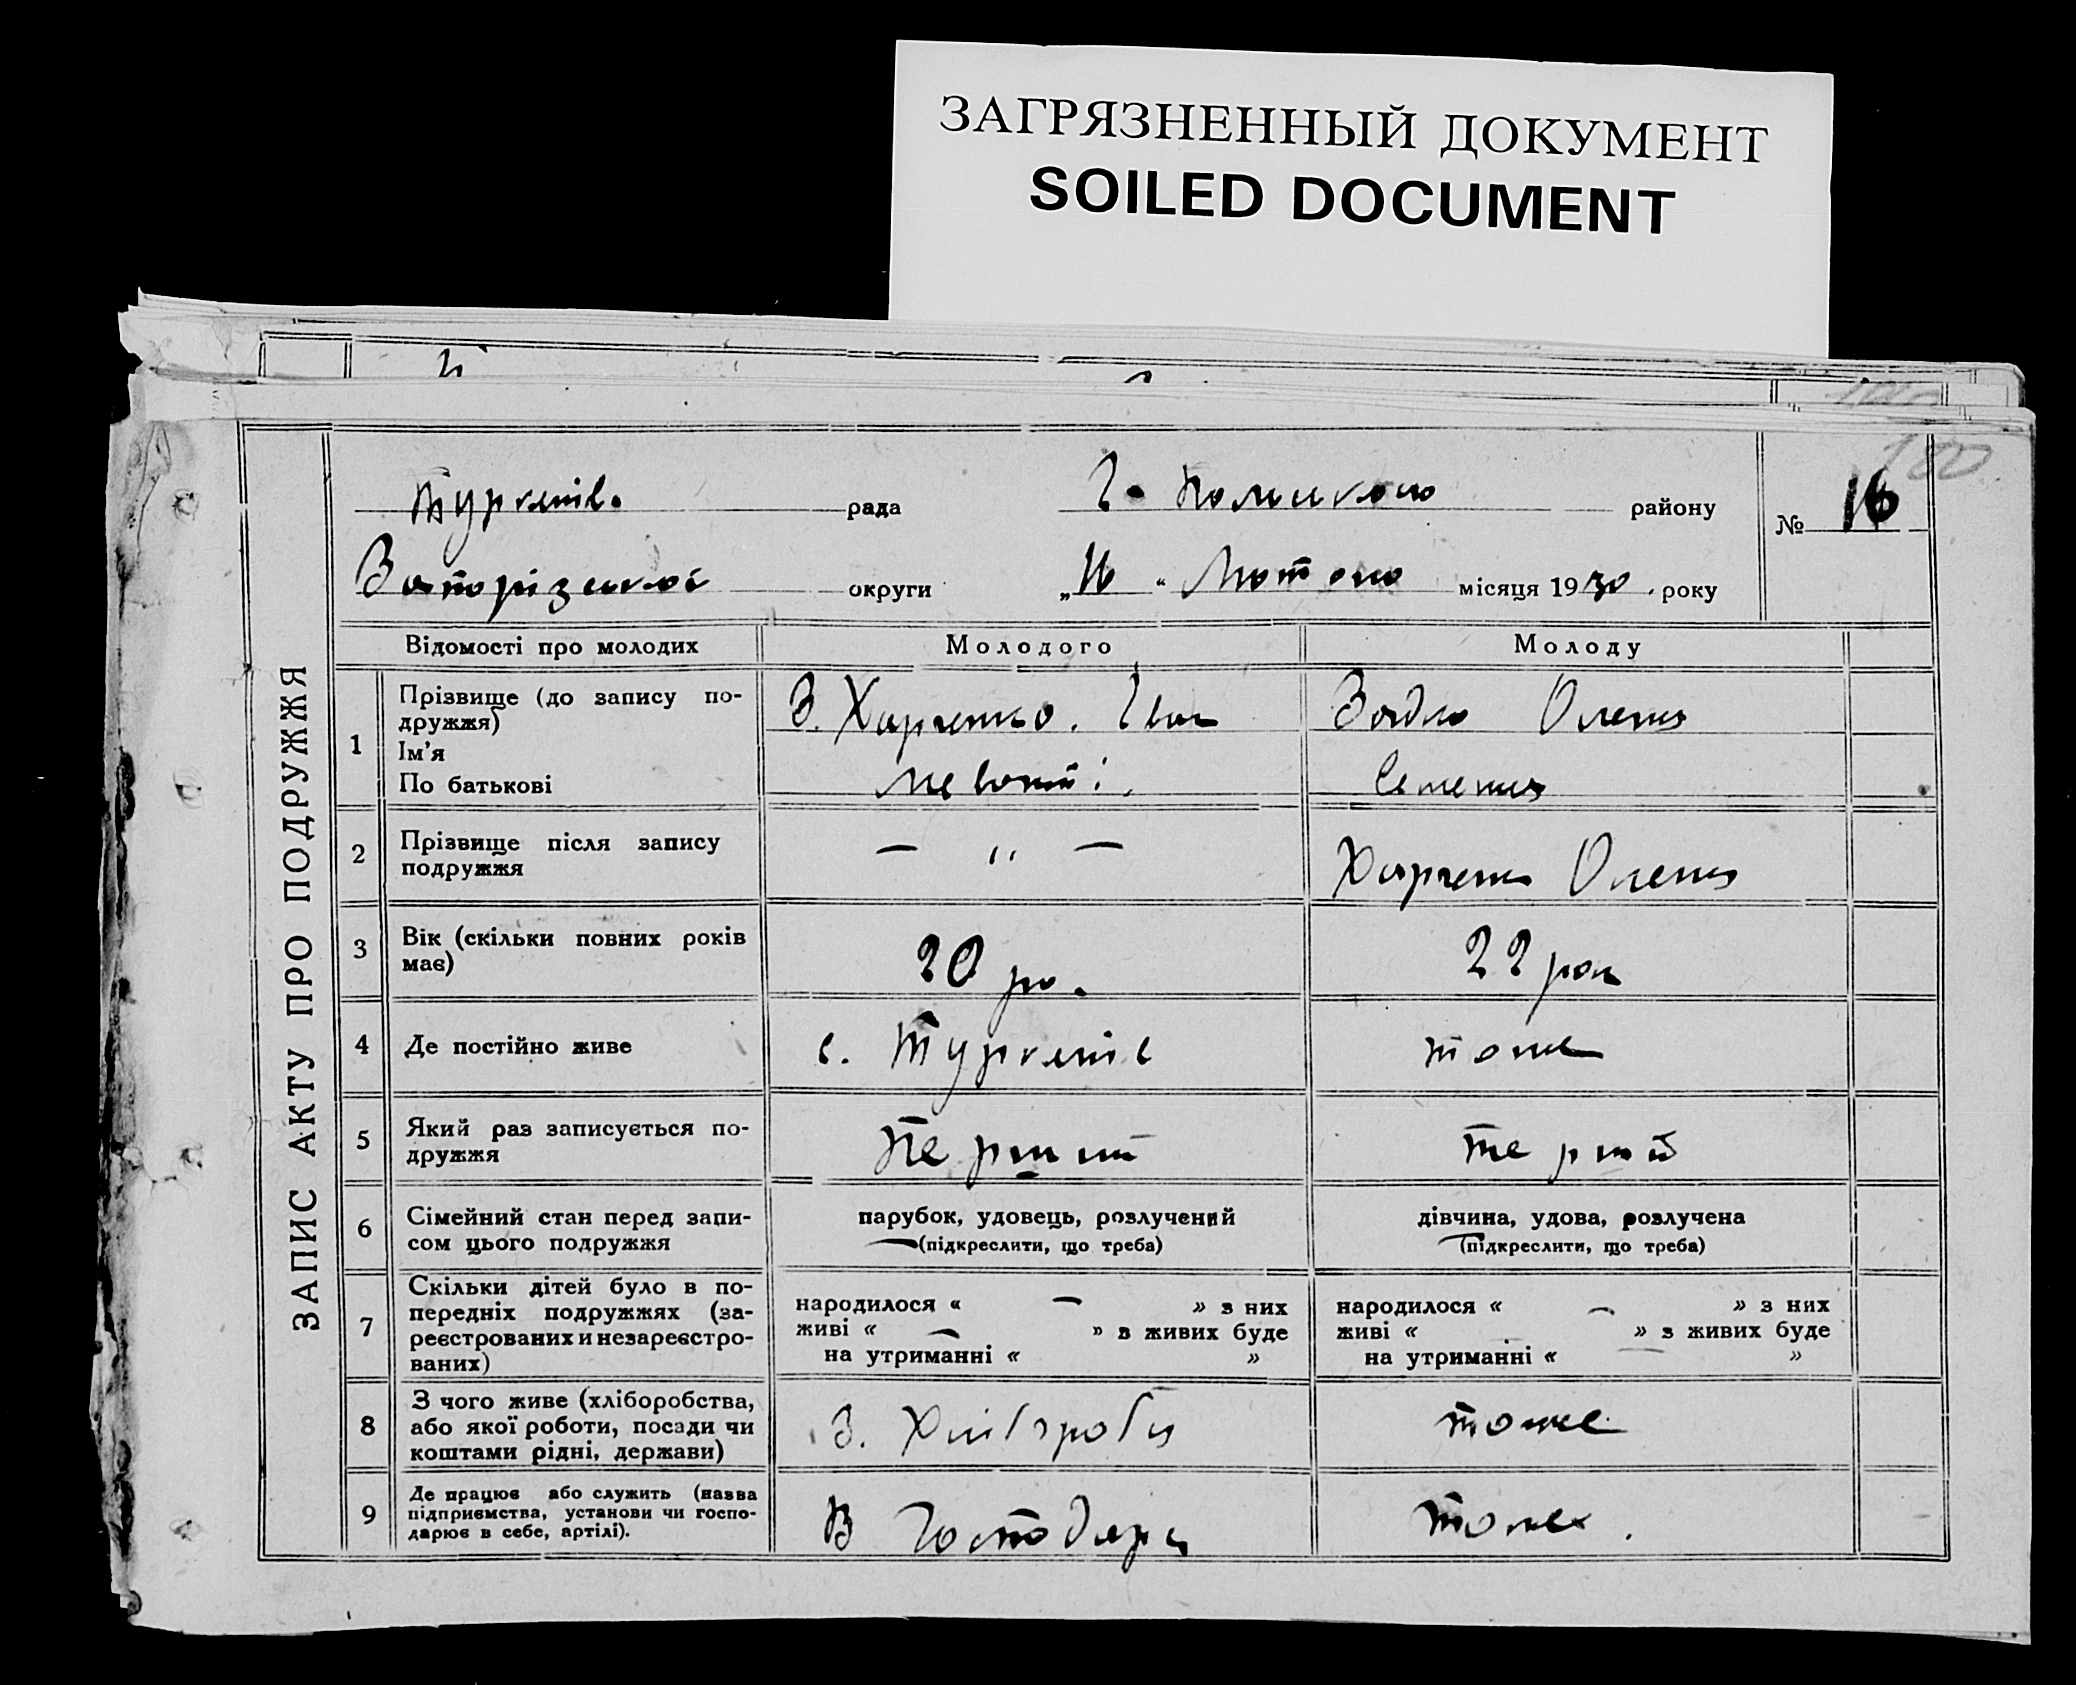 ЗАГРЯЗНЕННЫЙ ДОКУМЕНТ
SOILED DOCUMENT
100
ЗАПИС АКТУ ПРО ПОДРУЖЖЯ
Туркенів. рада Г. Полського району № 16
Запорізської округи „16" Лютого місяця 1930 . року
Відомості про молодих Молодого Молоду
1 Прізвище (до запису по-
дружжя)
Ім'я
По батькові
З. Харченко. Іван
Задко Олена
Семенів
2 Прізвище після запису
подружжя
— ,, —
Харченко Олена
3 Вік (скільки повних років
має)
20 ро.
22 рок
4 Де постійно живе
с. Туркенів
тоже
5 Який раз записується по-
дружжя
Перший
Перший
6 Сімейний стан перед запи-
сом цього подружжя
парубок, удовець, розлучений
(підкреслити, що треба)
дівчина, удова, розлучена
(підкреслити, що треба)
7 Скільки дітей було в по-
передніх подружжях (за-
реєстрованих и незареєстро-
ваних)
народилося « — » з них
живі « — » з живих буде
на утриманні « »
народилося « — » з них
живі « » з живих буде
на утриманні « — »
8 З чого живе (хліборобства,
або якої роботи, посади чи
коштами рідні, держави)
З. Хліборобія
тоже
9 Де працює або служить (назва
підприємства, установи чи госпо-
дарює в себе, артілі).
В Господарц
тоже.